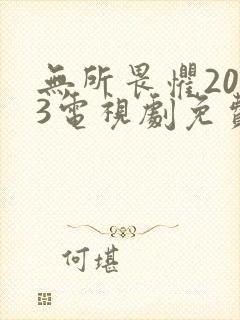 無所畏懼20
3電視劇免費
何堪